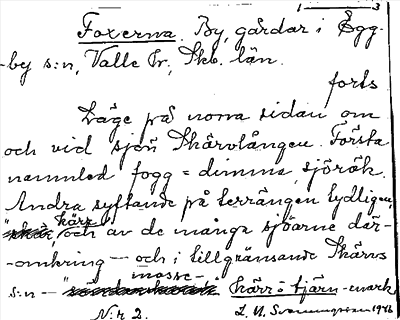 1 3
Foxerna. By, gårdar i Egg-
-by s:n, Valle hr., Skb. län.
forts
Läge på norra sidan om
och vid sjön Skärvlången. Första
namnled fogg = dimma, sjörök.
Andra syftande på terrängen tydligen
kärr,
och av de många sjöarne där-
-omkring — och i tillgränsande Skärvs
mosse-
s:n — kärr- o tjärn-mark
N:r 2. L. N. 1946